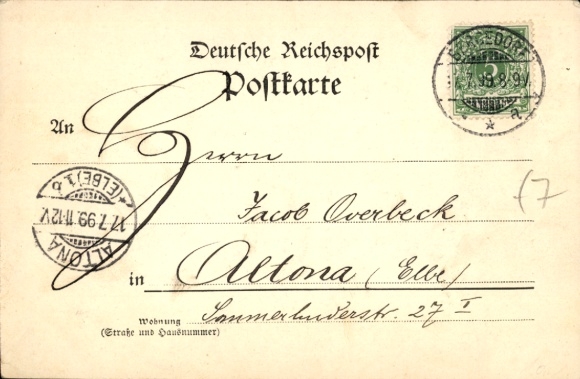 Deutsche Reichspost
Postkarte
BERGEDORF
17.7.99.8-9V.
5
An Herrn
Jacob Overbeck
in Altona (Elbe)
Wohnung
(Straße und Hausnummer)
27 I
ALTONA
17.7.99.11-12V.
(ELBE) 1.b
(7